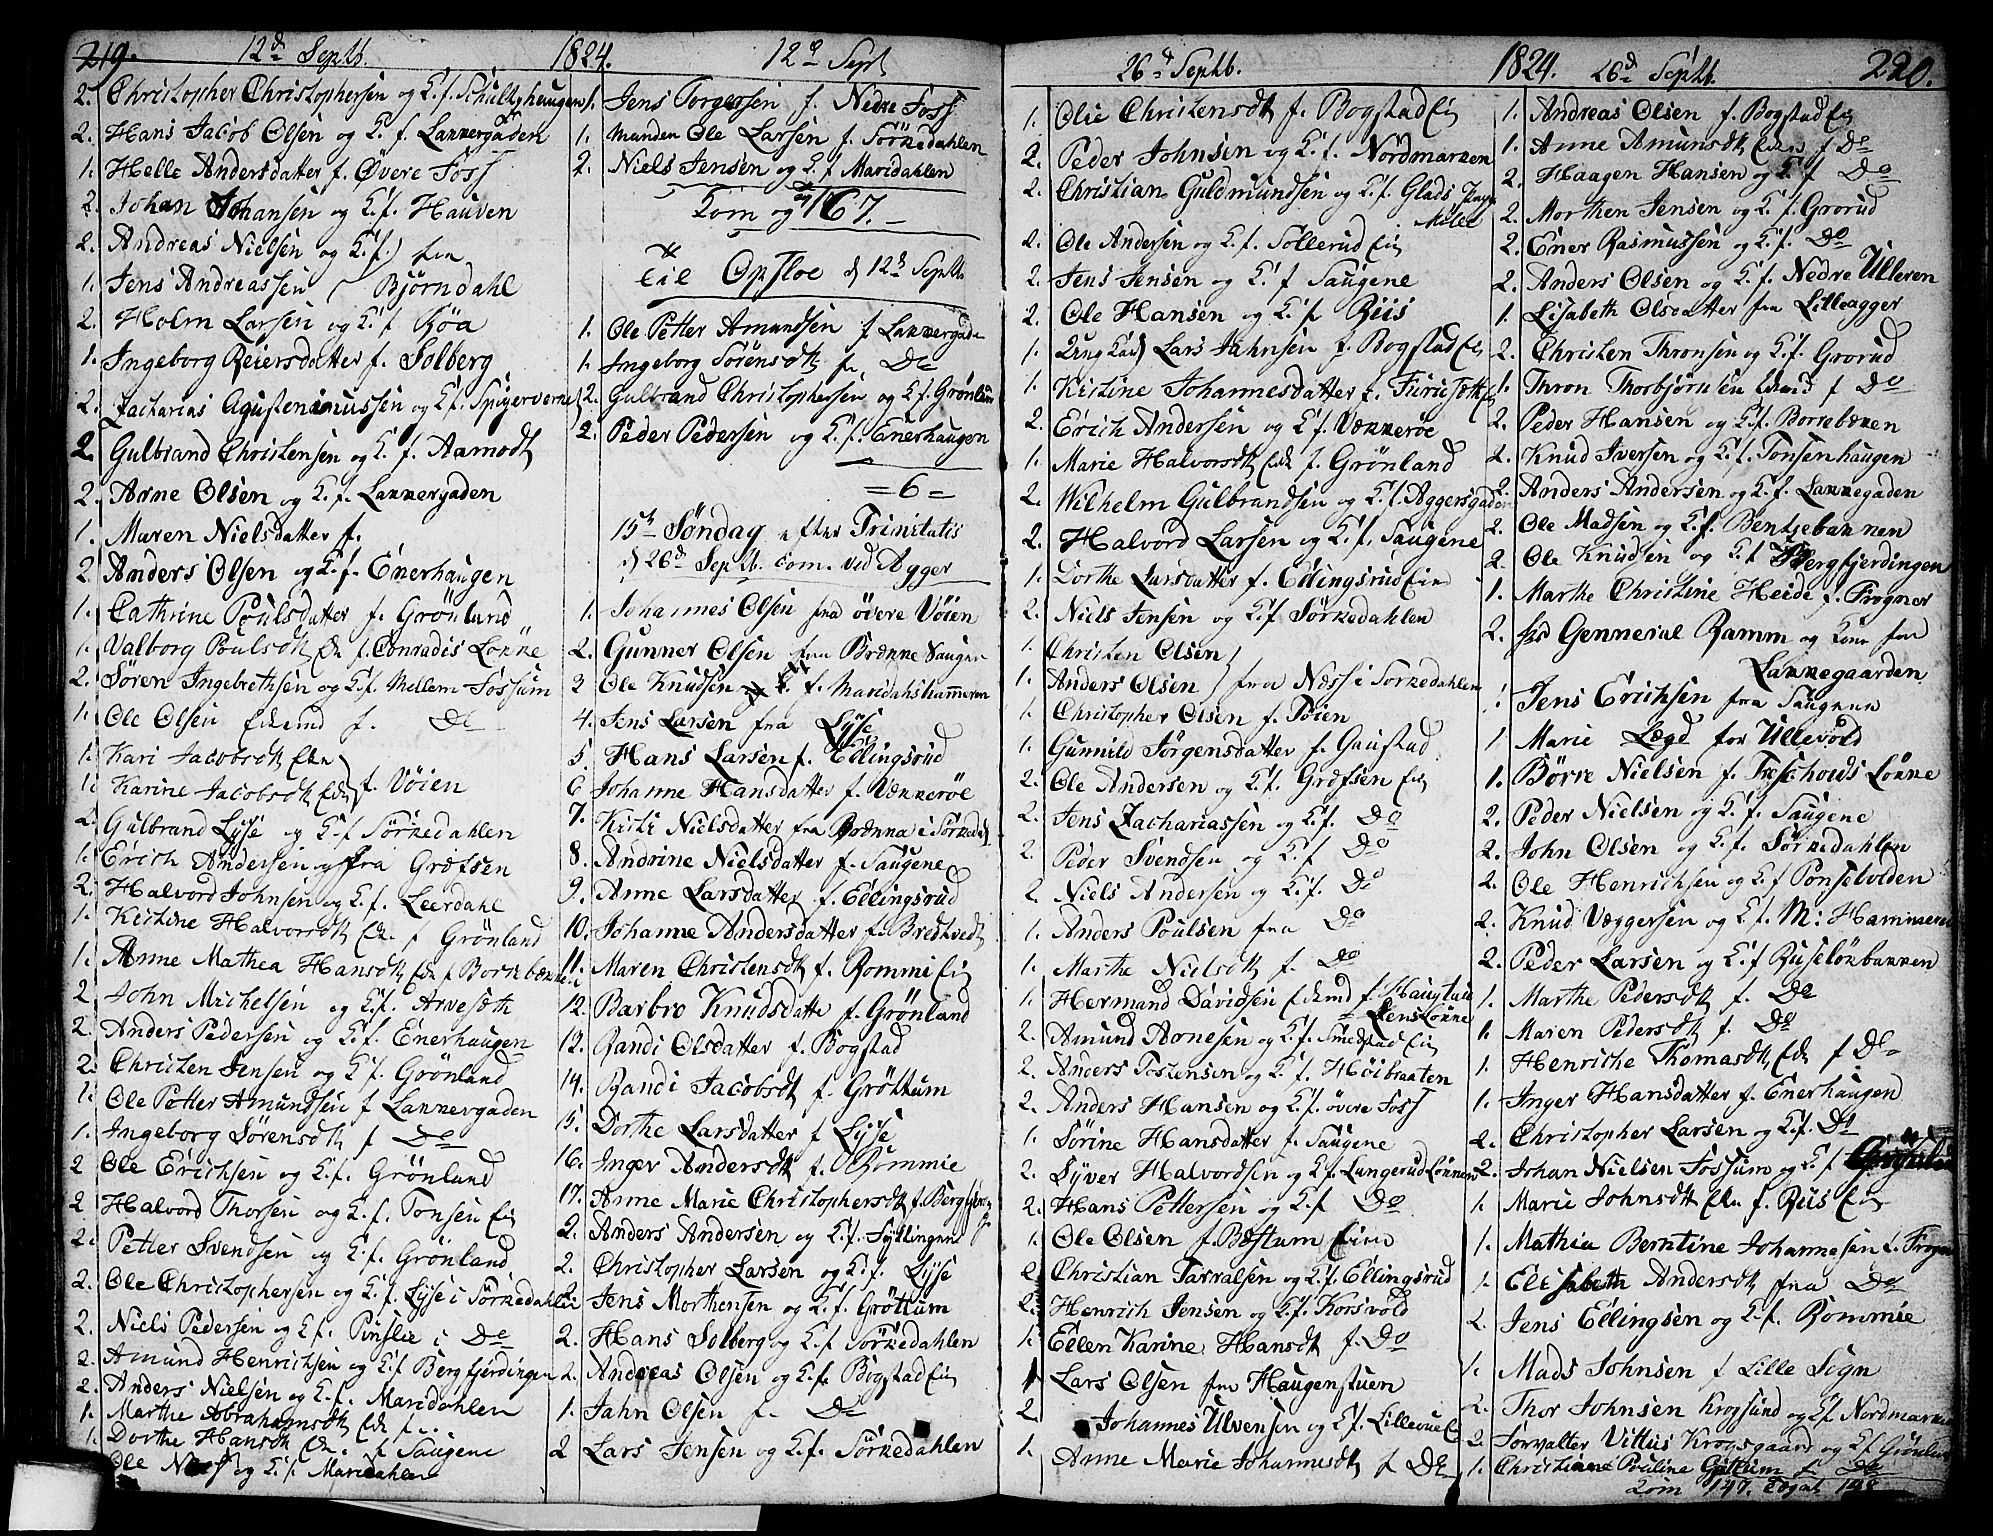 219. 12d Septb. 1824. 12d Sept
2. Christopher Christophersen og K. f. Schultzhaugen
2. Hans Jacob Olsen og K. f. Lakkergaden
1. Helle Andersdatter f. Øvere Foss
2. Johan Johansen og K. f. Hauven
2. Andreas Nielsen og K. f. fra
1. Jens Andreassen Björndahl
2. Holm Larsen og K. f. Röa
1. Ingeborg Reiersdatter f. Solberg
2. Zacharias Agustenimussen og K. f. Spigerverket
2. Gulbrand Christensen og K. f. Aamodt
2. Arne Olsen og K. f. Lakkergaden
1. Maren Nielsdatter f.
2. Anders Olsen og K. f. Enerhaugen
1. Cathrine Poulsdatter f. Grönland
1. Valborg Poulsdt Enke f. Conradis Lökke
2. Sören Ingebrethsen og K. f. Mellem Fossum
1. Ole Olsen Ekmd f. Do
1. Kari Jacobsdt Eke
1. Karine Jacobsdt Eke f. Vöien
2. Gulbrand Lyse og K. f. Sörkedahlen
1. Erich Andersen og fra Græfsen
2. Halvord Johnsen og K. f. Leerdahl
1. Kirstine Halvorsdt Eke f. Grönland
1. Anne Mathea Hansdt Eke f. Borkebække
2. John Michelsen og K. f. Arvesæth
2. Anders Pedersen og K. f. Enerhaugen
2. Christen Jensen og K. f. Grönland
1. Ole Petter Amundsen f. Lakkergaden
1. Ingeborg Sörensdt f. Do
2. Ole Erichsen og K. f. Grönland
2. Halvord Thorsen og K. f. Tonsen Eie
2. Petter Svendsen og K. f. Grönland
2. Ole Christophersen og K. f. Lyse i Sörkedahlen
2. Niels Pedersen og K. f. Pinslie i Do
2. Amund Henrichsen og K. f. Bergfjerdingen
2. Anders Nielsen og K. f. Maridahlen
1. Marthe Abrahamsdt Eke f.
1. Dorthe Hansdt Eke f. Saugene
Ole Næss og K. f. Maridahlen
1. Jens Torgersen f. Nedre Foss
1. Manden Ole Larsen f. Sörkedahlen
2. Niels Jensen og K. f. Maridahlen
Kom og 167.
Til Opsloe d 12d Septb
1. Ole Petter Amundsen f. Lakkergade
1. Ingeborg Sörensdt f. Do
2. Gulbrand Christophersen og K. f. Grönland
2. Peder Pedersen og K. f. Enerhaugen
= 6 =
15de Söndag efter Trinitatis
d 26d Septb. kom. ved Agger
1. Johannes Olsen fra övere Vöien
2. Gunner Olsen fra Brække Saugen
3 Ole Knudsen f. Maridahshammeren
4. Jens Larsen fra Lyse
5. Hans Larsen f. Ellingsrud
6 Johanne Hansdatter f. Vækkeröe
7. Kirsti Nielsdatter fra Brænna i Sörkedal
8. Andrine Nielsdatter f. Saugene
9. Anne Larsdatter f. Ellingsrud
10. Johanne Andersdatter f. Bredtvedt
11. Maren Christensdt f. Rommi Eie
12. Barbro Knudsdatter f. Grönland
12. Randi Olsdatter f. Bogstad
14. Randi Jacobsdt f. Gröttum
15. Dorthe Larsdatter f. Lyse
16. Inger Andersdt f. Rommie
17. Anne Marie Christophersdt f. Bergfjer
2. Anders Andersen og K. f. Fyllingen
2. Christopher Larsen og K. f. Lyse
2. Jens Morthensen og K. f. Gröttum
2. Hans Solberg og K. f. Sörkedahlen
2. Andreas Olsen og K. f. Bogstad Eie
1. Jahn Olsen f. Do
2 Lars Jensen og K. f. Sörkedahlen
26d Septb. 1824. 26d Septb. 220.
1. Olie Christensdt f. Bogstad Eie
2. Peder Johnsen og K. f. Nordmarken
2. Christian Guldmundsen og K. f. Glads
Mölle
2. Ole Andersen og K. f. Sollerud Eie
2. Jens Jensen og K. f. Saugene
2. Ole Hansen og K. f. Riis
1. Ung Karl Lars Jahnsen f. Bogstad Eie
1. Kirstine Johannesdatter f. Furusæth Eie
2. Erich Andersen og K. f. Vækkeröe
1. Marie Halvorsdt Eke f. Grönland
2. Wilhelm Gulbrandsen og K. f. Aggersgaden
2. Halvord Larsen og K. f. Saugene
1. Dorthe Larsdatter f. Ellingsrud Eie
2. Niels Jensen og K. f. Sörkedahlen
1. Christen Olsen
1. Anders Olsen fra Næss i Sorkedahlen
1. Christopher Olsen f. Töien
1. Gunnild Jörgensdatter f. Gaustad
2. Ole Andersen og K. f. Græfsen Eie
2. Jens Zachariassen og K. f. Do
2. Peder Svendsen og K. f. Do
2. Niels Andersen og K. f. Do
1. Anders Poulsen fra Do
1. Marthe Nielsdt f. Do
1. Hermand Davidsen Ekmd f. Haugtussen
Lens Lökke
2. Amund Arnesen og K. f. Smedstad Eie
2. Anders Torstensen og K. f. Höibraaten
2. Anders Hansen og K. f. övere Foss
1. Sörine Hansdatter f. Saugene
2. Syver Halvordsen og K. f. Langerud Lökken
2. Hans Pettersen og K. f. Do
1. Ole Olsen f. Bæstum Eie
2. Christian Tarralsen og K. f. Ellingsrud
2. Henrich Jensen og K. f. Korsvold
1. Ellen Karine Hansdt f. Do
1 Lars Olsen fra Haugenstuen
2. Johannes Ulvensen og K. f. Lillevue Eie
1. Anne Marie Johannesdt f. Do
1. Andreas Olsen f. Bogstad Eie
1. Anne Amundsdt Eke f. Do
2. Haagen Hansen og K. f. Do
2. Morthen Jensen og K. f. Grorud
2. Ener Rasmussen og K. f. Do
2. Anders Olsen og K. f. Nedre Ulleren
1. Lisabeth Olsdatter fra Lilleagger
2. Christen Thronsen og K. f. Grorud
1. Thron Thorbjörnsen Ekmd f. Do
2. Peder Hansen og K. f. Borrebækken
2. Knud Iversen og K. f. Tonsenhaugen
2. Anders Andersen og K. f. Lakkegaden
2. Ole Madsen og K. f. Bentsebakken
2. Ole Knudsen og K. f. Bergfjerdingen
1. Marthe Christine Heide f. Frogner
2. Genneral Ramm og Kone fra
Lakkegaarden
1 Jens Erichsen fra Saugene
1 Marie Lægd for Ullevold
1. Börre Nielsen f. Treschows Lökke
2. Peder Nielsen og K. f. Saugene
2. John Olsen og K. f. Sörkedahlen
2. Ole Henrichsen og K. f. Ponsevolden
2. Knud Væggersen og K. f. M: Hammeren
2. Peder Larsen og K. f. Ruselökbakken
1. Marthe Pedersdt f. Do
1. Maren Pedersdt f. Do
1. Henriche Thomasdt Eke f. Do
1. Inger Hansdatter f. Enerhaugen
2. Christopher Larsen og K. f. Do
2. Johan Nielsen Fossum og K. f. Grönland
1. Marie Johnsdt Eke f. Riis Eie
1. Mathia Berntine Johannesen f. Frogner
1. Elisabeth Andersdt fra Do
2. Jens Ellingsen og K. f. Rommie
1. Mads Johnsen f. Lille Sogn
2. Thor Johnsen Krogsund og K. f. Nordmarken
2. Forvalter Vittus Krogsgaard og K. f. Grönland
1. Christiane Pouline Gottum f. Do
Kom 147.